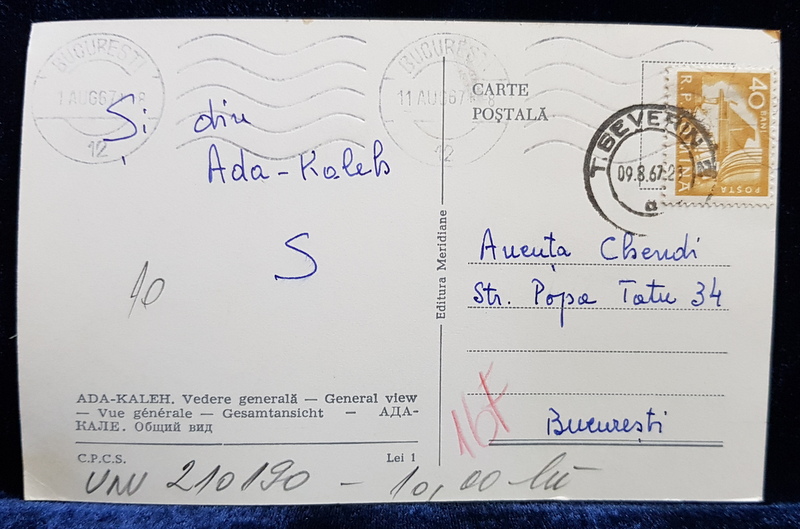 BUCUREȘTI
11 AUG67 18
12
BUCUREȘTI
11 AUG67 18
12
CARTE
POȘTALĂ
T. SEVERIN
09.8.67.21
a
40 BANI
R.P. ROMINA
POSTA
Și din
Ada-Kaleh
S
10
Editura Meridiane
Anenta Chendi
Str. Popa Tatu 34
București
16F
ADA-KALEH. Vedere generală — General view
— Vue générale — Gesamtansicht — АДА-
КАЛЕ. Общий вид
C.P.C.S.
Lei 1
210190 — 10,00 lei